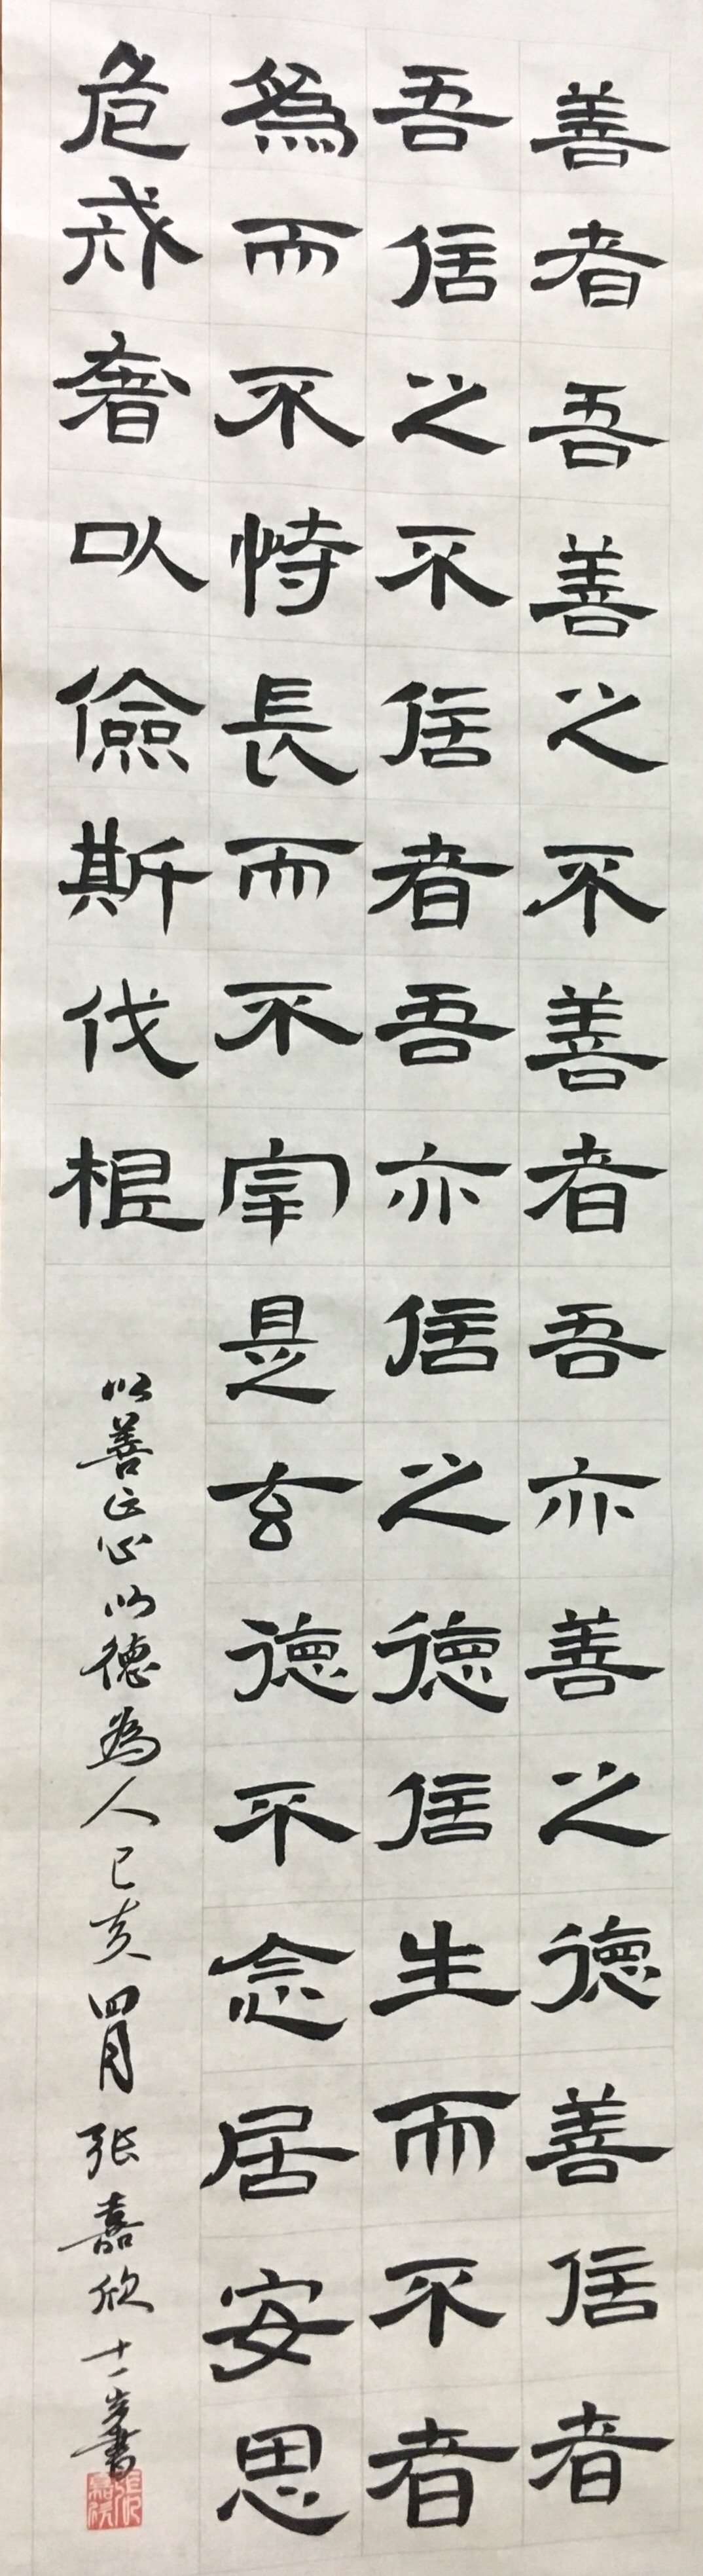 善者吾善之不善者吾亦善之德善信者
吾信之不信者吾亦信之德信生而不者
為而不恃長而不宰是玄德不念居安思
危戒奢以儉斯伐根
以善正心以德為人己亥四月張嘉欣十一歲書
張嘉欣印